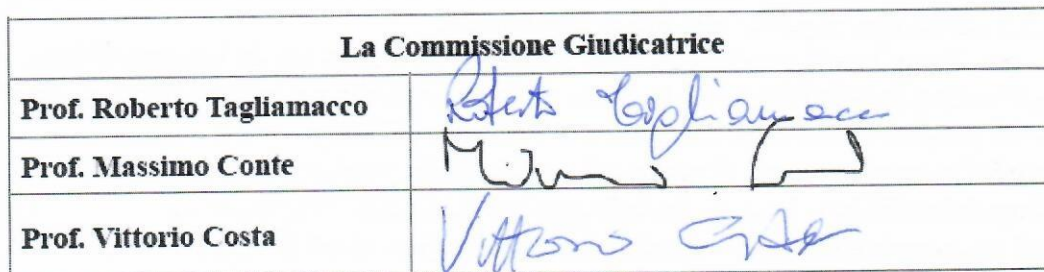 La Commissione Giudicatrice
Prof. Roberto Tagliamacco Roberto Tagliamacco
Prof. Massimo Conte
Prof. Vittorio Costa Vittorio Costa